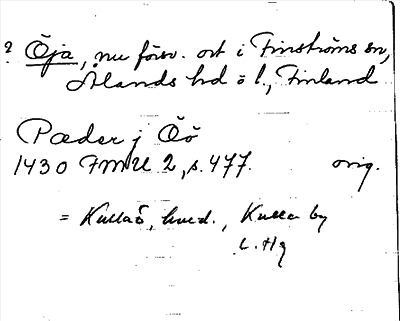 ? Öja, nu försv. ort i Finströms sn,
Ålands hd o l., Finland
Pæder j Öö
1430 FMU 2, s. 477. orig.
= Kullaö, hmd., Kulla by
L. Hg